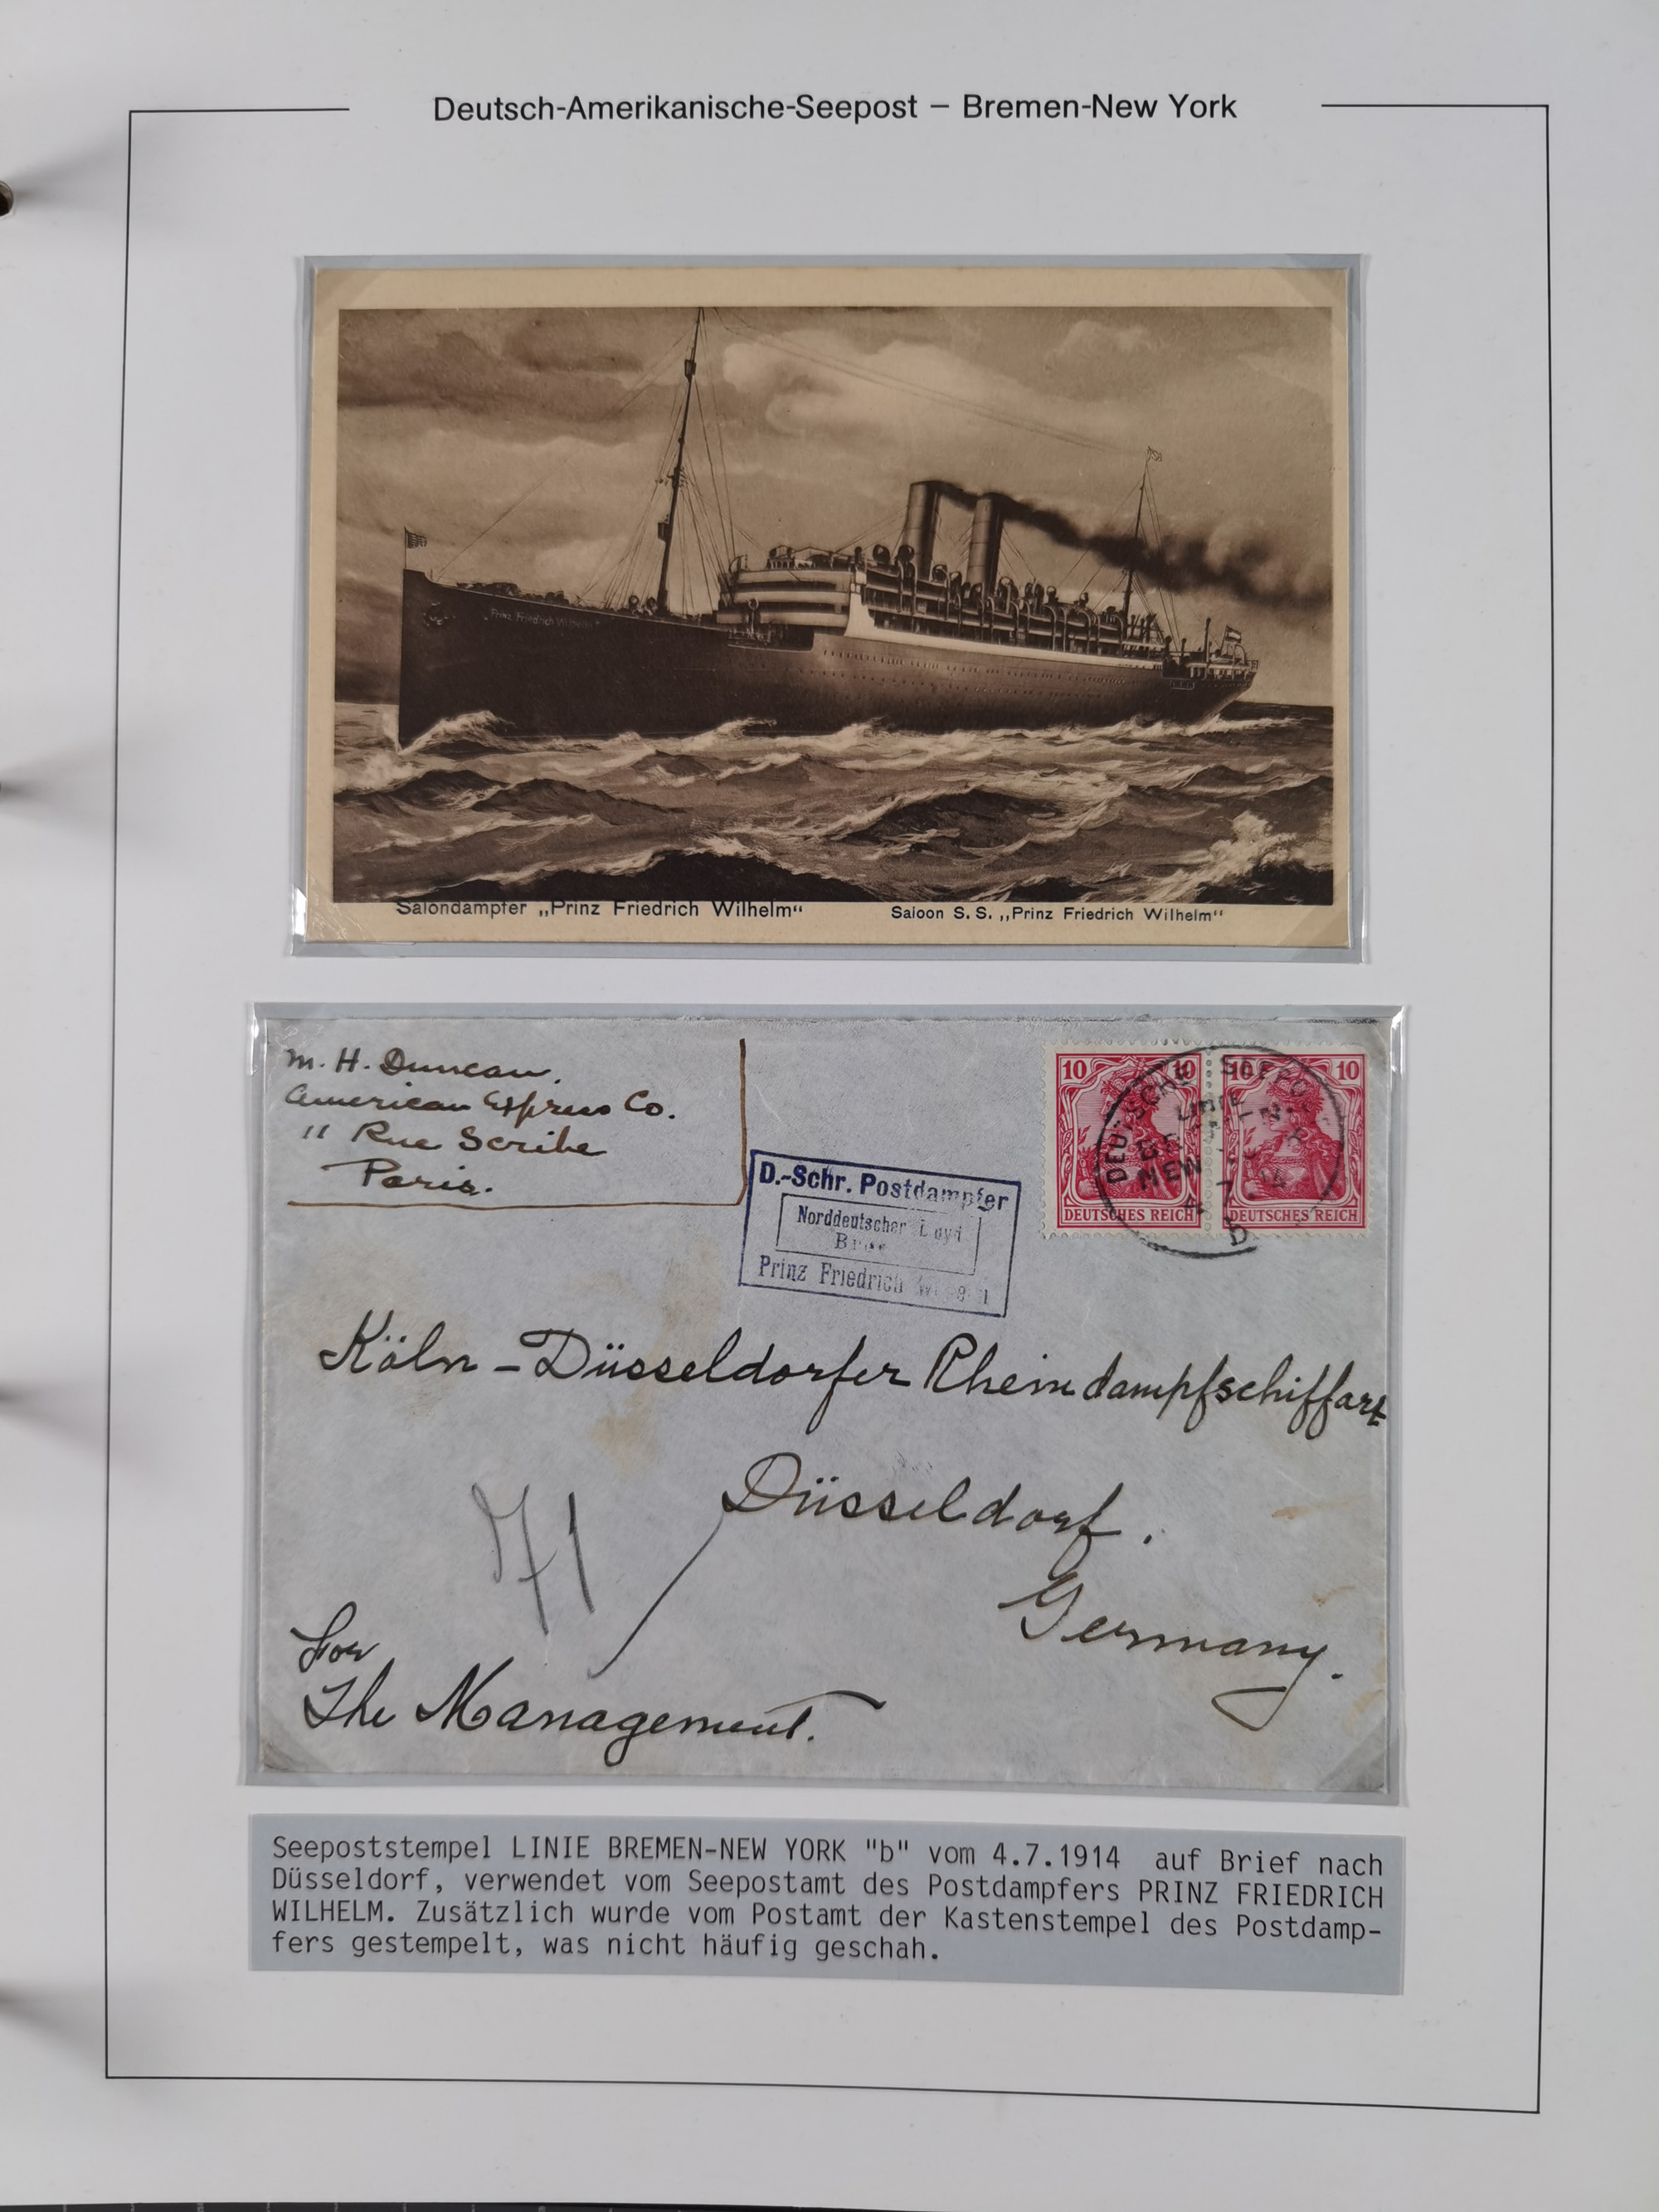 Deutsch-Amerikanische-Seepost – Bremen-New York
„Prinz Friedrich Wilhelm“
Salondampfer „Prinz Friedrich Wilhelm“ Saloon S.S. „Prinz Friedrich Wilhelm“
M. H. Duncan.
American Express Co.
11 Rue Scribe
Paris.
10 10 10 10
DEUTSCHE SEEPOST
LINIE
NEW
4. 7. 14
b
DEUTSCHES REICH DEUTSCHES REICH
D.-Schr. Postdampfer
Norddeutscher Lloyd
Prinz Friedrich
Köln-Düsseldorfer Rheindampfschiffart
Düsseldorf.
Germany.
71
for
The Management.
Seepoststempel LINIE BREMEN-NEW YORK "b" vom 4.7.1914 auf Brief nach
Düsseldorf, verwendet vom Seepostamt des Postdampfers PRINZ FRIEDRICH
WILHELM. Zusätzlich wurde vom Postamt der Kastenstempel des Postdamp-
fers gestempelt, was nicht häufig geschah.